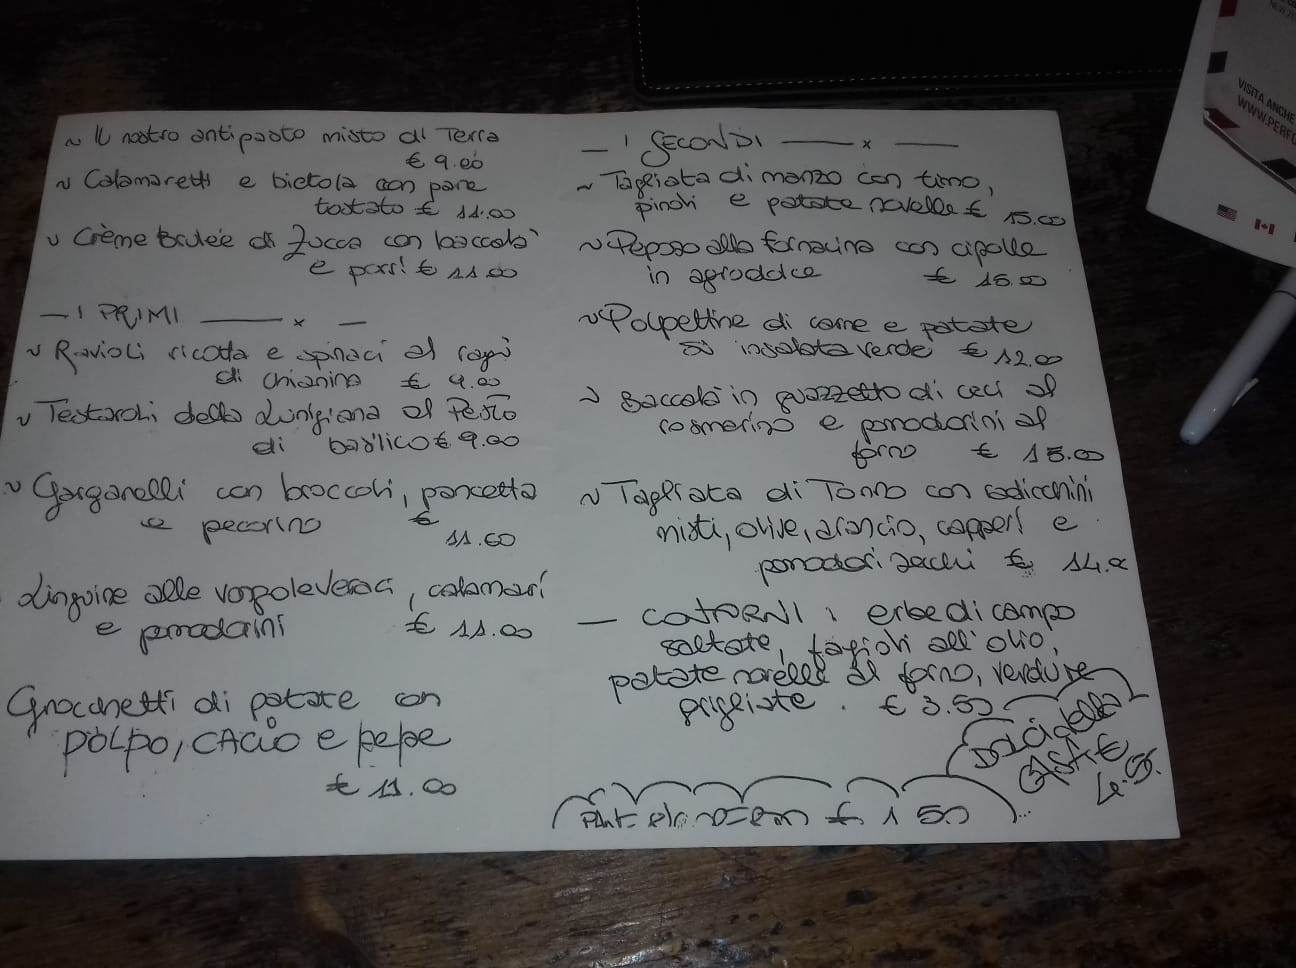 ~ Il nostro antipasto misto di Terra
€ 9.00
~ Calamaretti e bietola con pane
tostato € 11.00
~ Crème brulée di Zucca con baccalà
e porri € 11.00
— I PRIMI —— x —
~ Ravioli ricotta e spinaci al ragù
di chianina € 9.00
~ Testaroli della Lunigiana al Pesto
di basilico € 9.00
~ Garganelli con broccoli, pancetta
e pecorino €
11.00
Linguine alle vongoleveraci, calamari
e pomodorini € 11.00
Gnocchetti di patate con
POLPO, CACIO e pepe
€ 11.00
— I SECONDI —— x ——
~ Tagliata di manzo con timo,
pinoli e patate novelle € 15.00
~ Peposo alla fornacina con cipolle
in agrodolce € 15.00
~ Polpettine di carne e patate
su insalata verde € 12.00
~ Baccalà in guazzetto di ceci al
rosmarino e pomodorini al
forno € 15.00
~ Tagliata di Tonno con radicchini
misti, olive, arancio, capperi e
pomodori secchi € 14.
— CONTORNI: erbe di campo
saltate, fagioli all'olio,
patate novelle al forno, verdure
grigliate. € 3.50
DOLCI della
CASA €
4.5.
€ 1 50
VISITA ANCHE
WWW.PERFO